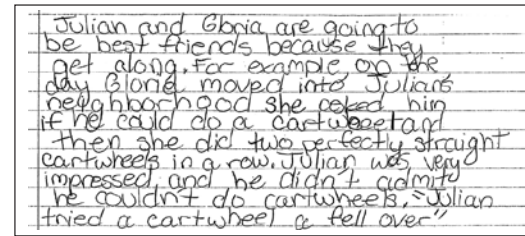 Julian and Gloria are going to
be best friends because they
get along. For example on the
day Gloria moved into Julian's
neighborhood she asked him
if he could do a cartwheel and
then she did two perfectly straight
cartwheels in a row. Julian was very
impressed and he didn't admit
he couldn't do cartwheels. "Julian
tried a cartwheel a fell over"